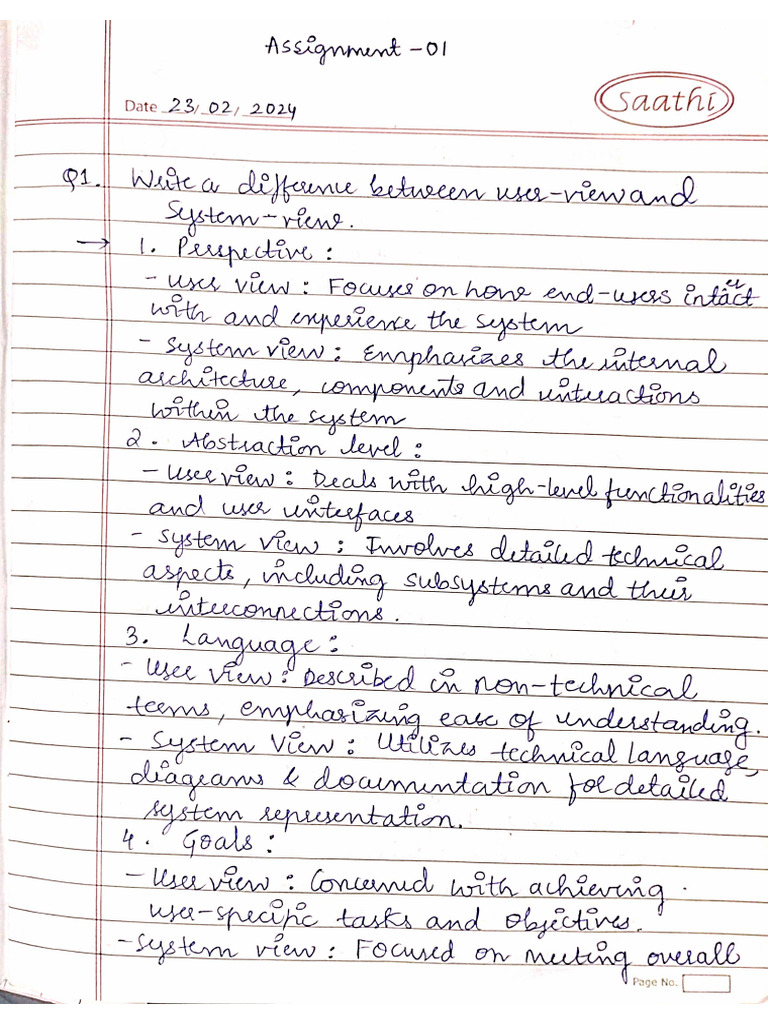 Assignment - 01
Date 23/ 02/ 2024
Saathi
Q1. Write a difference between user-view and
System-view.
→ 1. Perspective :
- User view : Focuses on how end-users intact
er
with and experience the system
- System view : Emphasizes the internal
architecture, components and interactions
within the system
2. Abstraction level :
- User view : Deals with high-level functionalities
and user interfaces
- System view : Involves detailed technical
aspects, including subsystems and their
interconnections.
3. Language :
- User view : Described in non-technical
terms, emphasizing ease of understanding.
- System View : Utilizes technical language,
diagrams & documentation for detailed
system representation.
4. Goals :
- User view : Concerned with achieving
user-specific tasks and objectives.
- System view : Focused on meeting overall
Page No.